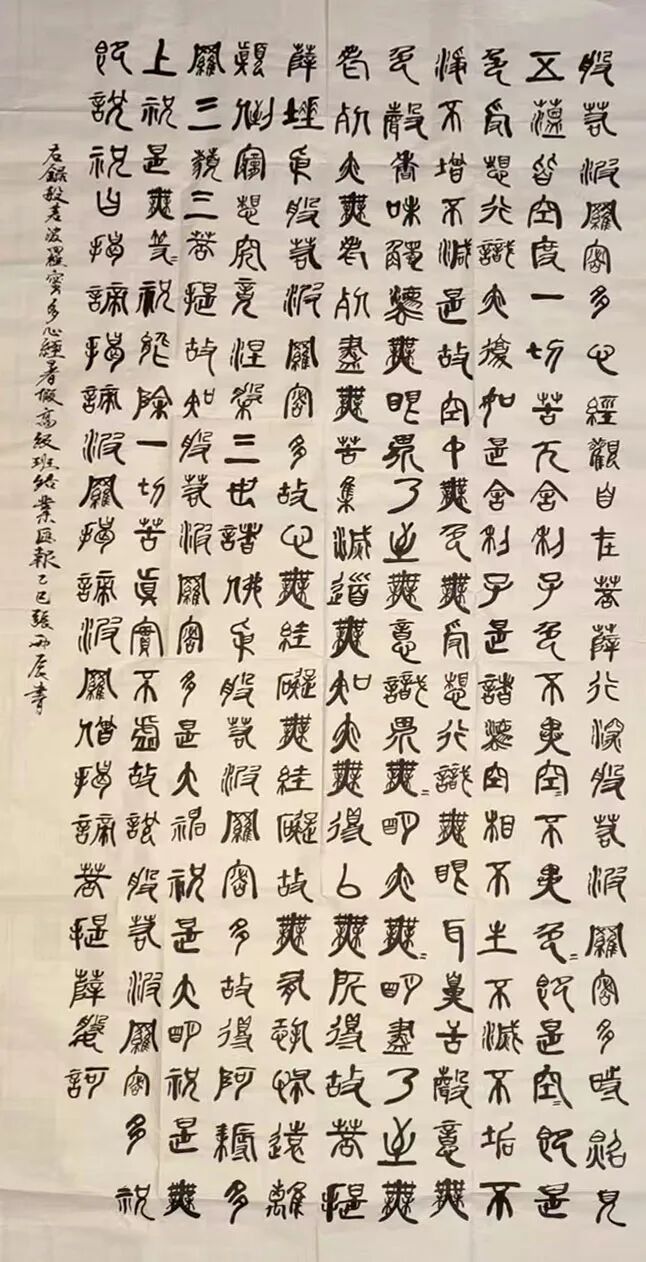 般若波羅密多心經觀自在菩薩行深般若波羅密多時照見
五蘊皆空度一切苦厄舍利子色不異空〻不異色〻即是空〻即是
色受想行識亦復如是舍利子是諸法空相不生不滅不垢不
淨不增不減是故空中無色無受想行識無眼耳鼻舌聲意無
色聲香味觸法無眼界乃至無意識界無〻明亦無〻明盡乃至無
老死亦無老死盡無苦集滅道無知亦無得以無所得故菩提
薩埵依般若波羅密多故心無罣礙無罣礙故無有恐怖遠離
顛倒夢想究竟涅槃三世諸佛依般若波羅密多故得阿耨多
羅三藐三菩提故知般若波羅密多是大神祝是大明祝是無
上祝是無等〻祝能除一切苦真實不虛故說般若波羅密多祝
即說祝曰揭諦揭諦波羅揭諦波羅僧揭諦菩提薩婆訶
右錄般若波羅密多心經暑假高級班結業匯報乙巳張丙辰書